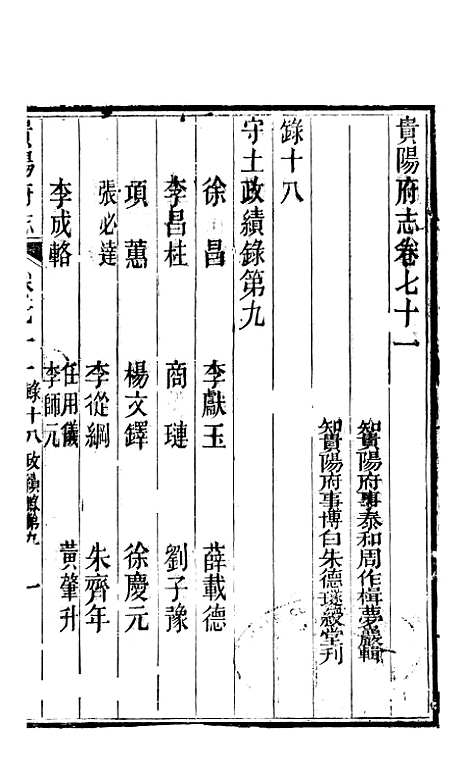 貴陽府志卷七十一
知貴陽府事泰和周作楫夢巖輯
知貴陽府事博白朱德璲綬堂刊
錄十八
守土政績錄第九
徐昌 李獻玉 薛載德
李昌桂 商璉 劉子豫
項蕙 楊文鐸 徐慶元
張必達 李從綱 朱齊年
李成輅 任用儀 黃肇升
李師元
貴陽府志 卷七十一 錄十八 政績錄第九 一